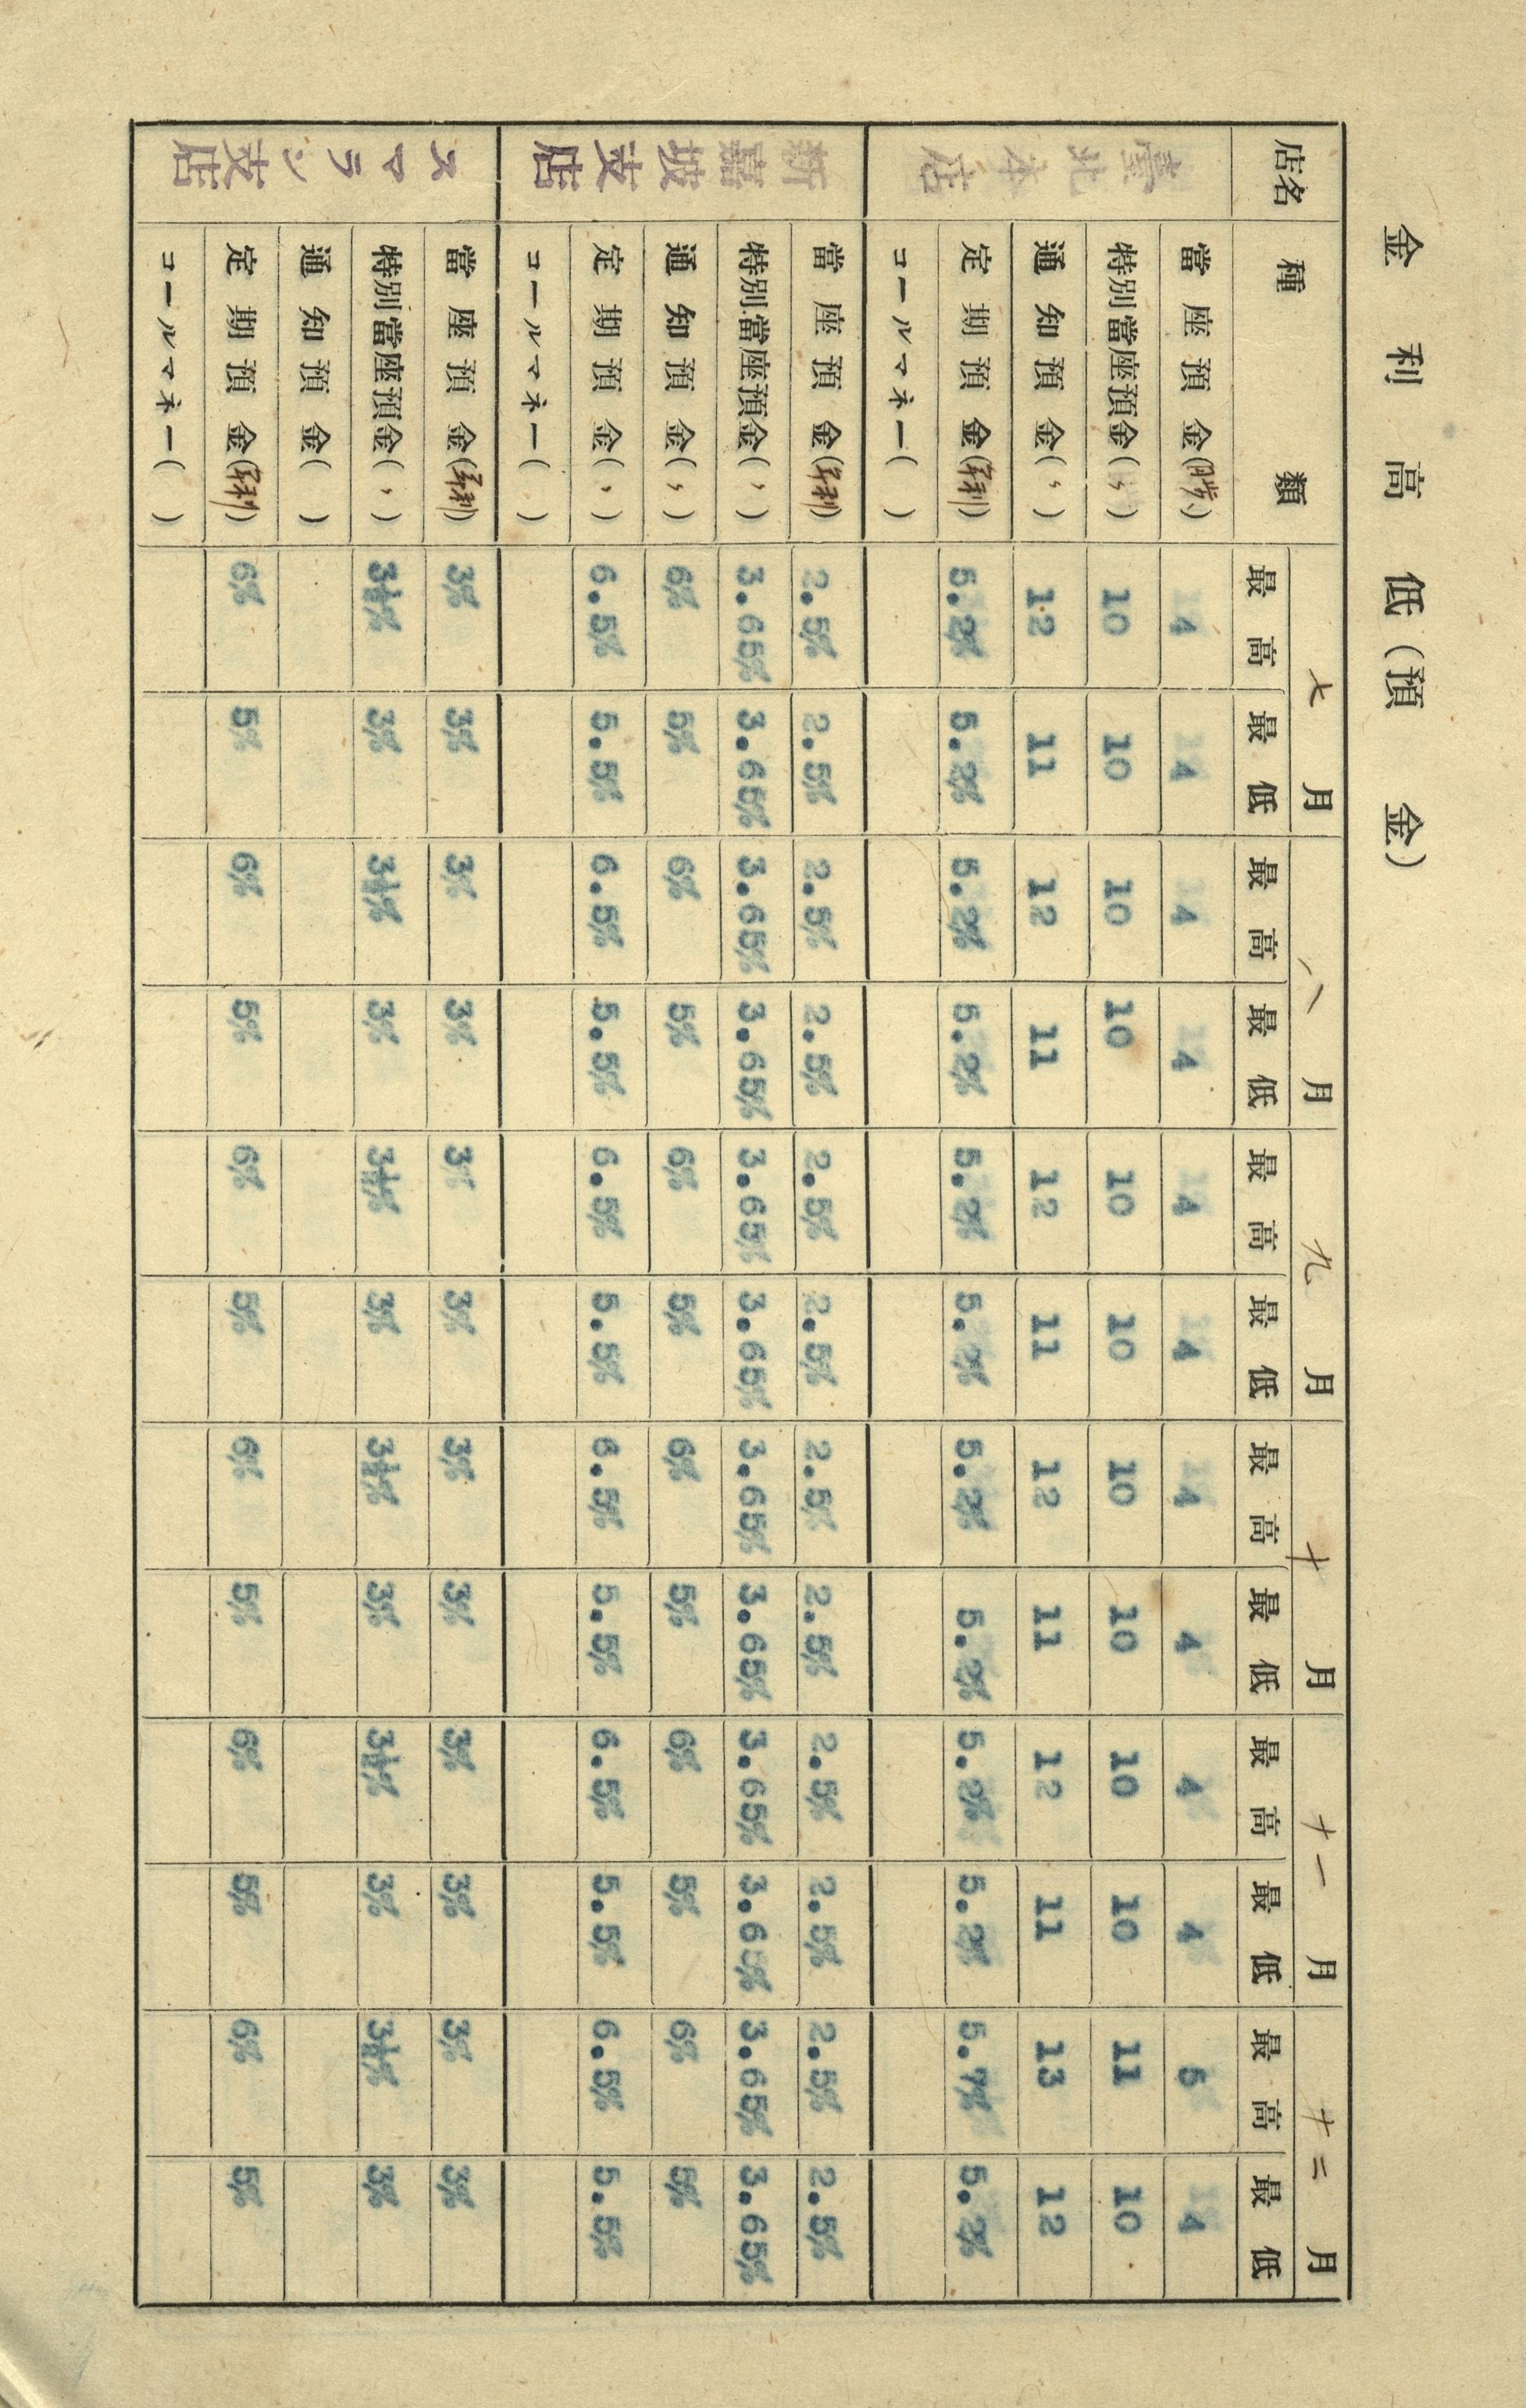 金利高低(預金)
店名 種類 七月 八月 九月 十月 十一月 十二月
最高 最低 最高 最低 最高 最低 最高 最低 最高 最低 最高 最低
臺北本店
當座預金(日歩) 4 4 4 4 4 4 4 4 4 4 5 4
特別當座預金(〃) 10 10 10 10 10 10 10 10 10 10 11 10
通知預金(〃) 12 11 12 11 12 11 12 11 12 11 13 12
定期預金(年利) 5.2% 5.2% 5.2% 5.2% 5.2% 5.2% 5.2% 5.2% 5.2% 5.2% 5.7% 5.2%
コールマネー( )
新嘉坡支店
當座預金(年利) 2.5% 2.5% 2.5% 2.5% 2.5% 2.5% 2.5% 2.5% 2.5% 2.5% 2.5% 2.5%
特別當座預金(〃) 3.65% 3.65% 3.65% 3.65% 3.65% 3.65% 3.65% 3.65% 3.65% 3.65% 3.65% 3.65%
通知預金(〃) 6% 5% 6% 5% 6% 5% 6% 5% 6% 5% 6% 5%
定期預金(〃) 6.5% 5.5% 6.5% 5.5% 6.5% 5.5% 6.5% 5.5% 6.5% 5.5% 6.5% 5.5%
コールマネー( )
スマラン支店
當座預金(年利) 3% 3% 3% 3% 3% 3% 3% 3% 3% 3% 3% 3%
特別當座預金(〃) 3½% 3% 3½% 3% 3½% 3% 3½% 3% 3½% 3% 3½% 3%
通知預金( )
定期預金(年利) 6% 5% 6% 5% 6% 5% 6% 5% 6% 5% 6% 5%
コールマネー( )